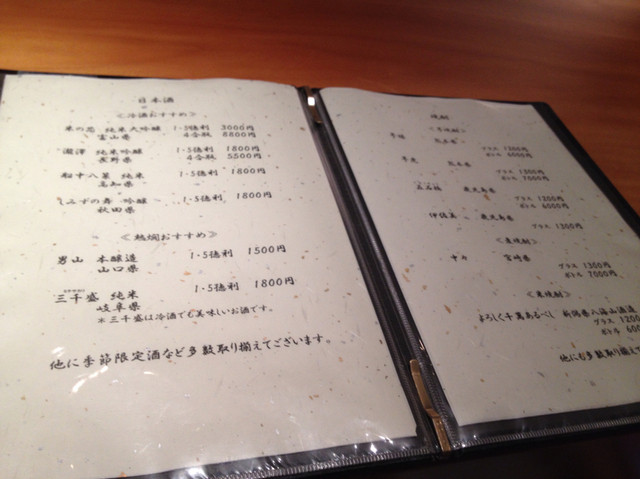 日本酒
<冷酒おすすめ>
米の芯 純米大吟醸 1·5徳利 3000円
富山県 4合瓶 8800円
瀧澤 純米吟醸 1·5徳利 1800円
長野県 4合瓶 5500円
船中八策 純米 1·5徳利 1800円
高知県
しみずの舞 吟醸 1·5徳利 1800円
秋田県
<熱燗おすすめ>
男山 本醸造 1·5徳利 1500円
山口県
三千盛 純米 1·5徳利 1800円
岐阜県
※三千盛は冷酒でも美味しいお酒です。
他に季節限定酒など多数取り揃えてございます。
焼酎
<芋焼酎>
グラス 1200円
ボトル 6000円
グラス 1300円
ボトル 7000円
鹿児島県
グラス 1200円
ボトル 6000円
伊佐美 鹿児島県
グラス 1300円
<麦焼酎>
十々 宮崎県
グラス 1300円
ボトル 7000円
<米焼酎>
よろしく千萬あるべし 新潟県八海山酒造
グラス 1200
ボトル 600
他にも多数取り揃え